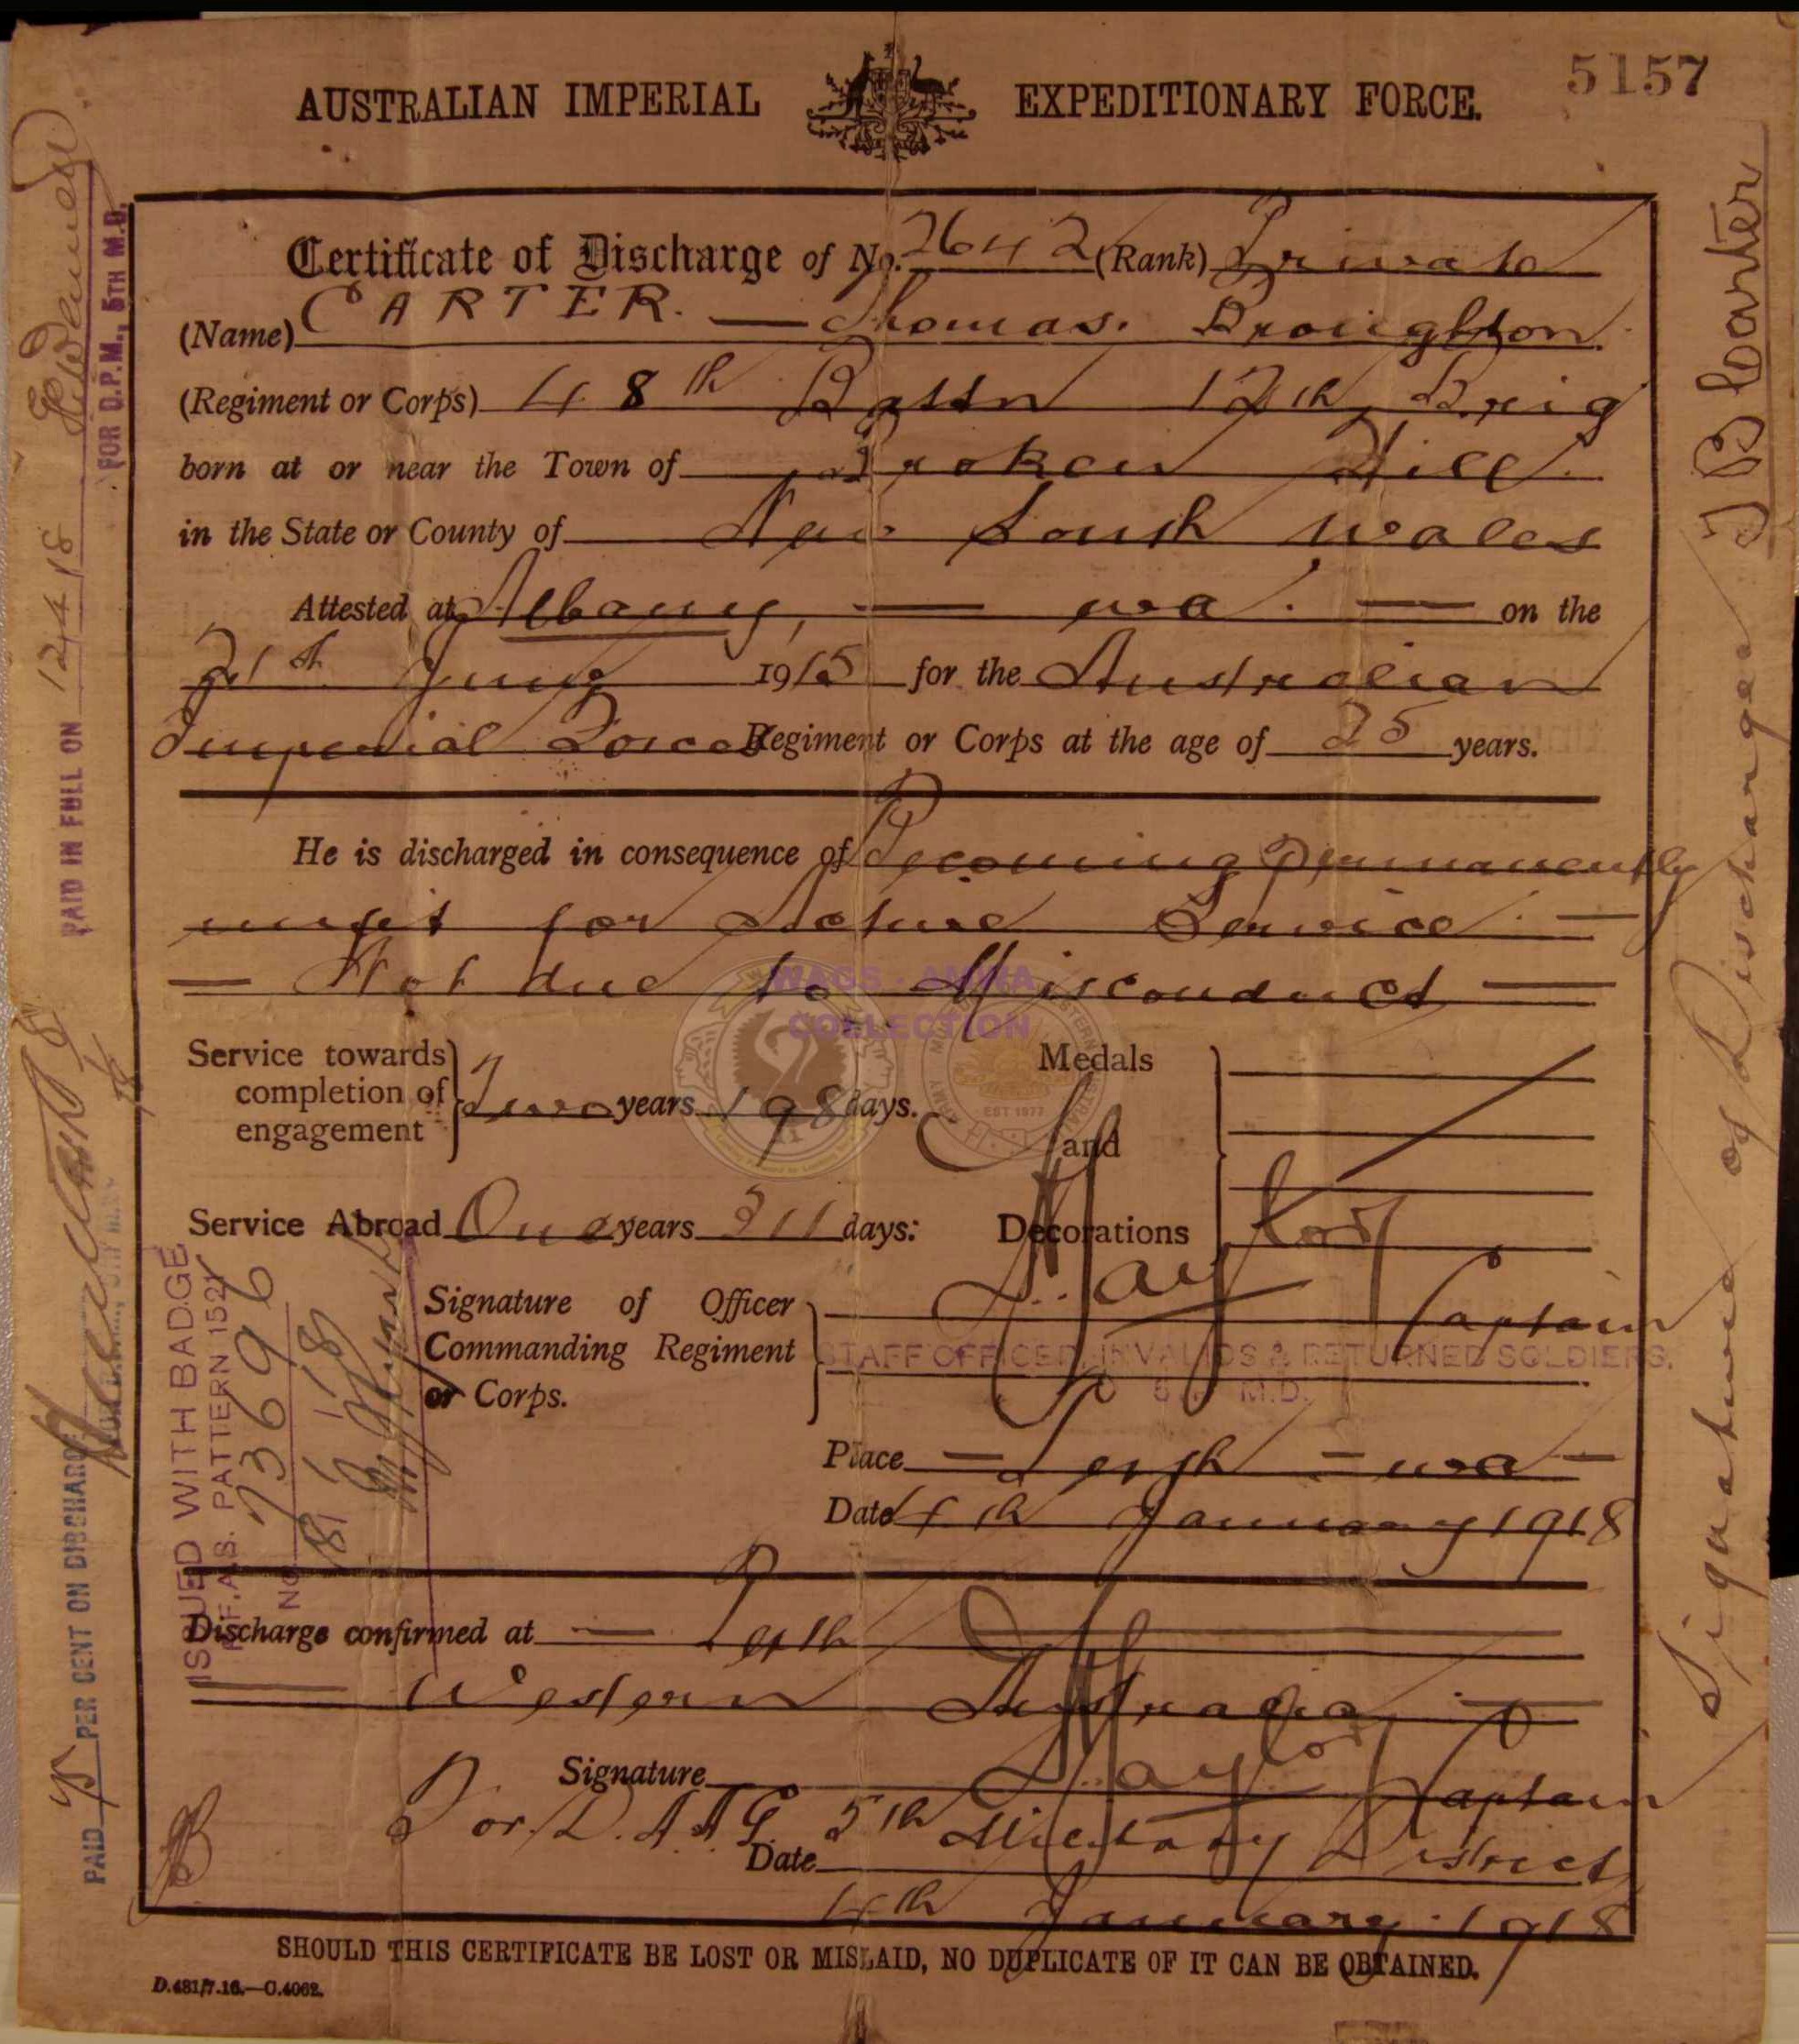 5157
AUSTRALIAN IMPERIAL EXPEDITIONARY FORCE.
Certificate of Discharge of No. 2642 (Rank) Private
(Name) CARTER. — Thomas. Broughton.
(Regiment or Corps) 48th Battn 12th Brig
born at or near the Town of Broken Hill.
in the State or County of New South Wales
Attested at Albany, — wa. — on the
21st June 1915 for the Australian
Imperial Forces Regiment or Corps at the age of 25 years.
He is discharged in consequence of Becoming Permanently
unfit for Active Service. —
— Not due to Misconduct —
WAGS - AMWA
COLLECTION
EST 1977
Service towards completion of engagement } Two years 198 days.
Medals and Decorations
Service Abroad One years 211 days:
Signature of Officer Commanding Regiment or Corps. Taylor Captain
STAFF OFFICER, INVALIDS & RETURNED SOLDIERS.
5 M.D.
Place — Perth — wa —
Date 4th January 1918
Discharge confirmed at — Perth
Western Australia —
Signature Taylor Captain
For D.A.A.G. 5th Military District
Date 4th January. 1918
SHOULD THIS CERTIFICATE BE LOST OR MISLAID, NO DUPLICATE OF IT CAN BE OBTAINED.
D.481/7.16.—C.4062.
ISSUED WITH BADGE
PATTERN 1521
NO. 73696
18/1/18
PAID IN FULL ON 12/4/18
FOR D.P.M., 5TH M.D.
PAID 75 PER CENT ON DISCHARGE
Signature of Dischargee T B Carter